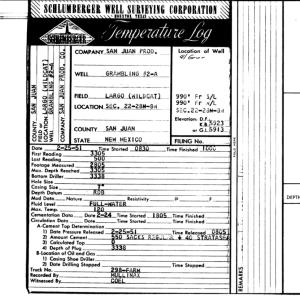 SCHLUMBERGER WELL SURVEYING CORPORATION
HOUSTON, TEXAS
Temperature Log
SCHLUMBERGER
COUNTY SAN JUAN
FIELD or LOCATION LARGO (WILDCAT)
WELL GRAMBLING #2-A
COMPANY SAN JUAN PROD. CO.
COMPANY SAN JUAN PROD.
WELL GRAMBLING #2-A
FIELD LARGO (WILDCAT)
LOCATION SEC. 22-28N-8W
COUNTY SAN JUAN
STATE NEW MEXICO
Location of Well
990' Fr S/L
990' Fr
SEC. 22-28N-8W
Elevation: D.F.
K.B. 5923
or G.L. 5913
FILING No.
Date 2-25-51 Time Started 0830 Time Finished 1000
First Reading 3305
Last Reading 500
Footage Measured 2805
Max. Depth Reached 3305
Bottom Driller 3338
Hole Size
Casing Size 7"
Depth Datum RDB
Mud Data—Nature Resistivity
Fluid Level FULL-WATER
Max. Temp. 120
Cementation Data Date 2-24 Time Started 1805 Time Finished
Circulation Data Time Started Time Finished
A-Cement Top Determination
1) Date Pressure Released 2-25-51 Time Released 0805
2) Amount Cement 550 SACKS REGULAR & 40 STRATASEAL
3) Calculated Top 0
4) Depth of Plug 3338
B-Location of Oil and Gas
1) Casing Shoe Driller
2) Date Drilling Stopped Time Finished
Truck No. 298-FARM
Recorded By MULLINAX
Witnessed By GOEL
REMARKS
DEPTH